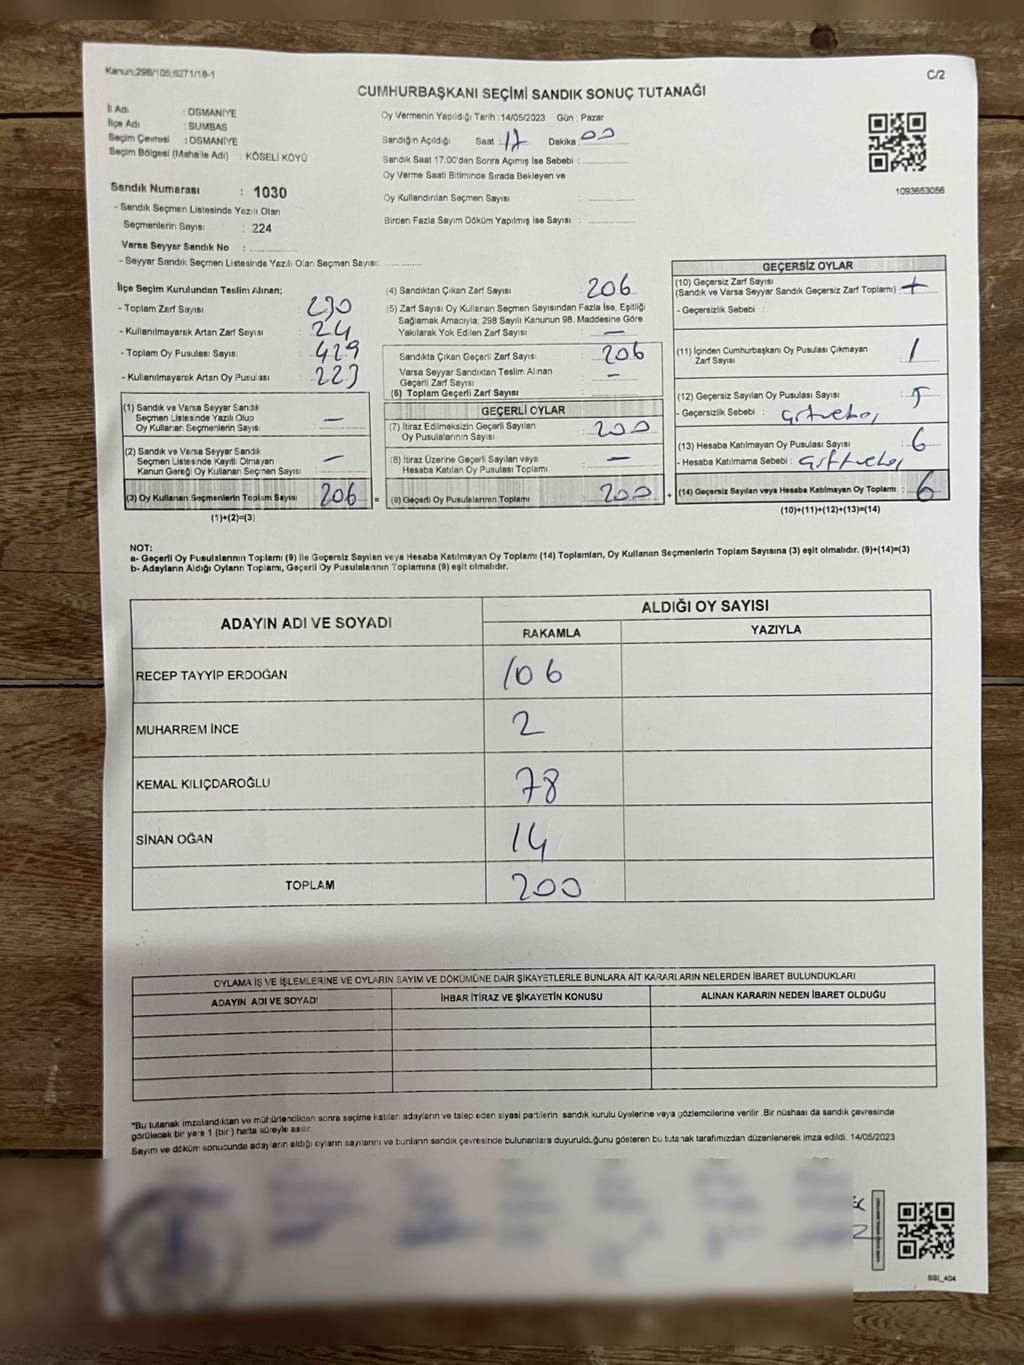 Kanun;298/105;6271/18-1
C/2
CUMHURBAŞKANI SEÇİMİ SANDIK SONUÇ TUTANAĞI
İl Adı : OSMANİYE
İlçe Adı : SUMBAS
Seçim Çevresi : OSMANİYE
Seçim Bölgesi (Mahalle Adı) : KÖSELİ KÖYÜ
Sandık Numarası : 1030
- Sandık Seçmen Listesinde Yazılı Olan
Seçmenlerin Sayısı : 224
Varsa Seyyar Sandık No : ..............
- Seyyar Sandık Seçmen Listesinde Yazılı Olan Seçmen Sayısı: ............
Oy Vermenin Yapıldığı Tarih :14/05/2023 Gün : Pazar
Sandığın Açıldığı Saat : 17 Dakika : 00
Sandık Saat 17:00'den Sonra Açmış İse Sebebi : ..............
Oy Verme Saati Bitiminde Sırada Bekleyen ve
Oy Kullandırılan Seçmen Sayısı : ..............
Birden Fazla Sayım Döküm Yapılmış İse Sayısı : ..............
1093653056
İlçe Seçim Kurulundan Teslim Alınan;
- Toplam Zarf Sayısı : 230
- Kullanılmayarak Artan Zarf Sayısı : 24
- Toplam Oy Pusulası Sayısı : 429
- Kullanılmayarak Artan Oy Pusulası : 223
(1) Sandık ve Varsa Seyyar Sandık
Seçmen Listesinde Yazılı Olup
Oy Kullanan Seçmenlerin Sayısı : —
(2) Sandık ve Varsa Seyyar Sandık
Seçmen Listesinde Kayıtlı Olmayan
Kanun Gereği Oy Kullanan Seçmen Sayısı : —
(3) Oy Kullanan Seçmenlerin Toplam Sayısı 206 =
(1)+(2)=(3)
(4) Sandıktan Çıkan Zarf Sayısı : 206
(5) Zarf Sayısı Oy Kullanan Seçmen Sayısından Fazla İse, Eşitliği
Sağlamak Amacıyla, 298 Sayılı Kanunun 98. Maddesine Göre
Yakılarak Yok Edilen Zarf Sayısı : —
Sandıkta Çıkan Geçerli Zarf Sayısı : 206
Varsa Seyyar Sandıktan Teslim Alınan
Geçerli Zarf Sayısı : —
(6) Toplam Geçerli Zarf Sayısı :
GEÇERLİ OYLAR
(7) İtiraz Edilmeksizin Geçerli Sayılan
Oy Pusulalarının Sayısı : 200
(8) İtiraz Üzerine Geçerli Sayılan veya
Hesaba Katılan Oy Pusulası Toplamı : —
(9) Geçerli Oy Pusulalarının Toplamı : 200 +
GEÇERSİZ OYLAR
(10) Geçersiz Zarf Sayısı
(Sandık ve Varsa Seyyar Sandık Geçersiz Zarf Toplamı) :
- Geçersizlik Sebebi :
(11) İçinden Cumhurbaşkanı Oy Pusulası Çıkmayan
Zarf Sayısı : 1
(12) Geçersiz Sayılan Oy Pusulası Sayısı : 5
- Geçersizlik Sebebi :
(13) Hesaba Katılmayan Oy Pusulası Sayısı : 6
- Hesaba Katılmama Sebebi :
(14) Geçersiz Sayılan veya Hesaba Katılmayan Oy Toplamı : 6
(10)+(11)+(12)+(13)=(14)
NOT:
a- Geçerli Oy Pusulalarının Toplamı (9) ile Geçersiz Sayılan veya Hesaba Katılmayan Oy Toplamı (14) Toplamları, Oy Kullanan Seçmenlerin Toplam Sayısına (3) eşit olmalıdır. (9)+(14)=(3)
b- Adayların Aldığı Oyların Toplamı, Geçerli Oy Pusulalarının Toplamına (9) eşit olmalıdır.
ADAYIN ADI VE SOYADI
ALDIĞI OY SAYISI
RAKAMLA YAZIYLA
RECEP TAYYİP ERDOĞAN 106
MUHARREM İNCE 2
KEMAL KILIÇDAROĞLU 78
SİNAN OĞAN 14
TOPLAM 200
OYLAMA İŞ VE İŞLEMLERİNE VE OYLARIN SAYIM VE DÖKÜMÜNE DAİR ŞİKAYETLERLE BUNLARA AİT KARARLARIN NELERDEN İBARET BULUNDUKLARI
ADAYIN ADI VE SOYADI İHBAR İTİRAZ VE ŞİKAYETİN KONUSU ALINAN KARARIN NEDEN İBARET OLDUĞU
*Bu tutanak imzalandıktan ve mühürlendikten sonra seçime katılan adayların ve talep eden siyasi partilerin sandık kurulu üyelerine veya gözlemcilerine verilir .Bir nüshası da sandık çevresinde
görülecek bir yere 1 (bir) hafta süreyle asılır.
Sayım ve döküm sonucunda adayların aldığı oyların sayılarını ve bunların sandık çevresinde bulunanlara duyurulduğunu gösteren bu tutanak tarafımızdan düzenlenerek imza edildi. 14/05/2023
SSI_404